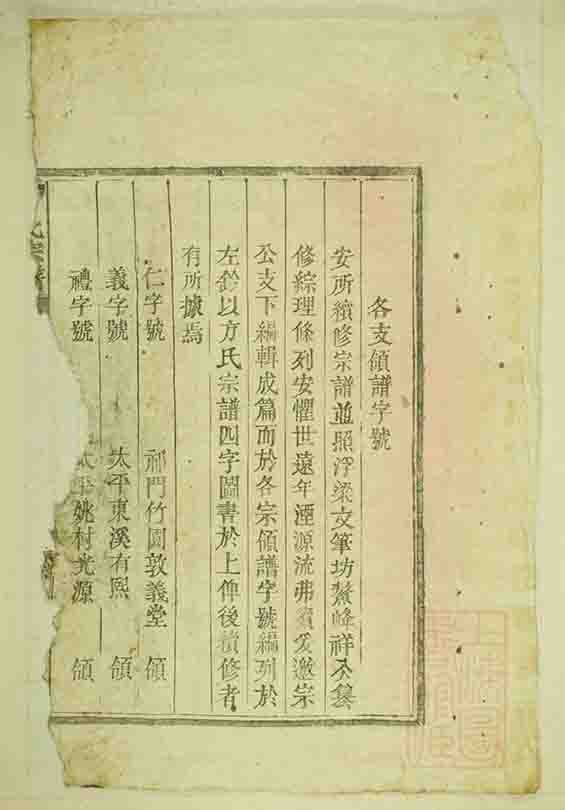 各支領譜字號
安所續修宗譜並照浮梁文筆坊鰲峰祥公纂
修綜理條列安懼世遠年湮源流弗爰邀宗
公支下編輯成篇而於各宗領譜字號編列於
左鈐以方氏宗譜四字圖書於上俾後續修者
有所據焉
仁字號 祁門竹園敦義堂 領
義字號 太平東溪有熙 領
禮字號 太平姚村光源 領